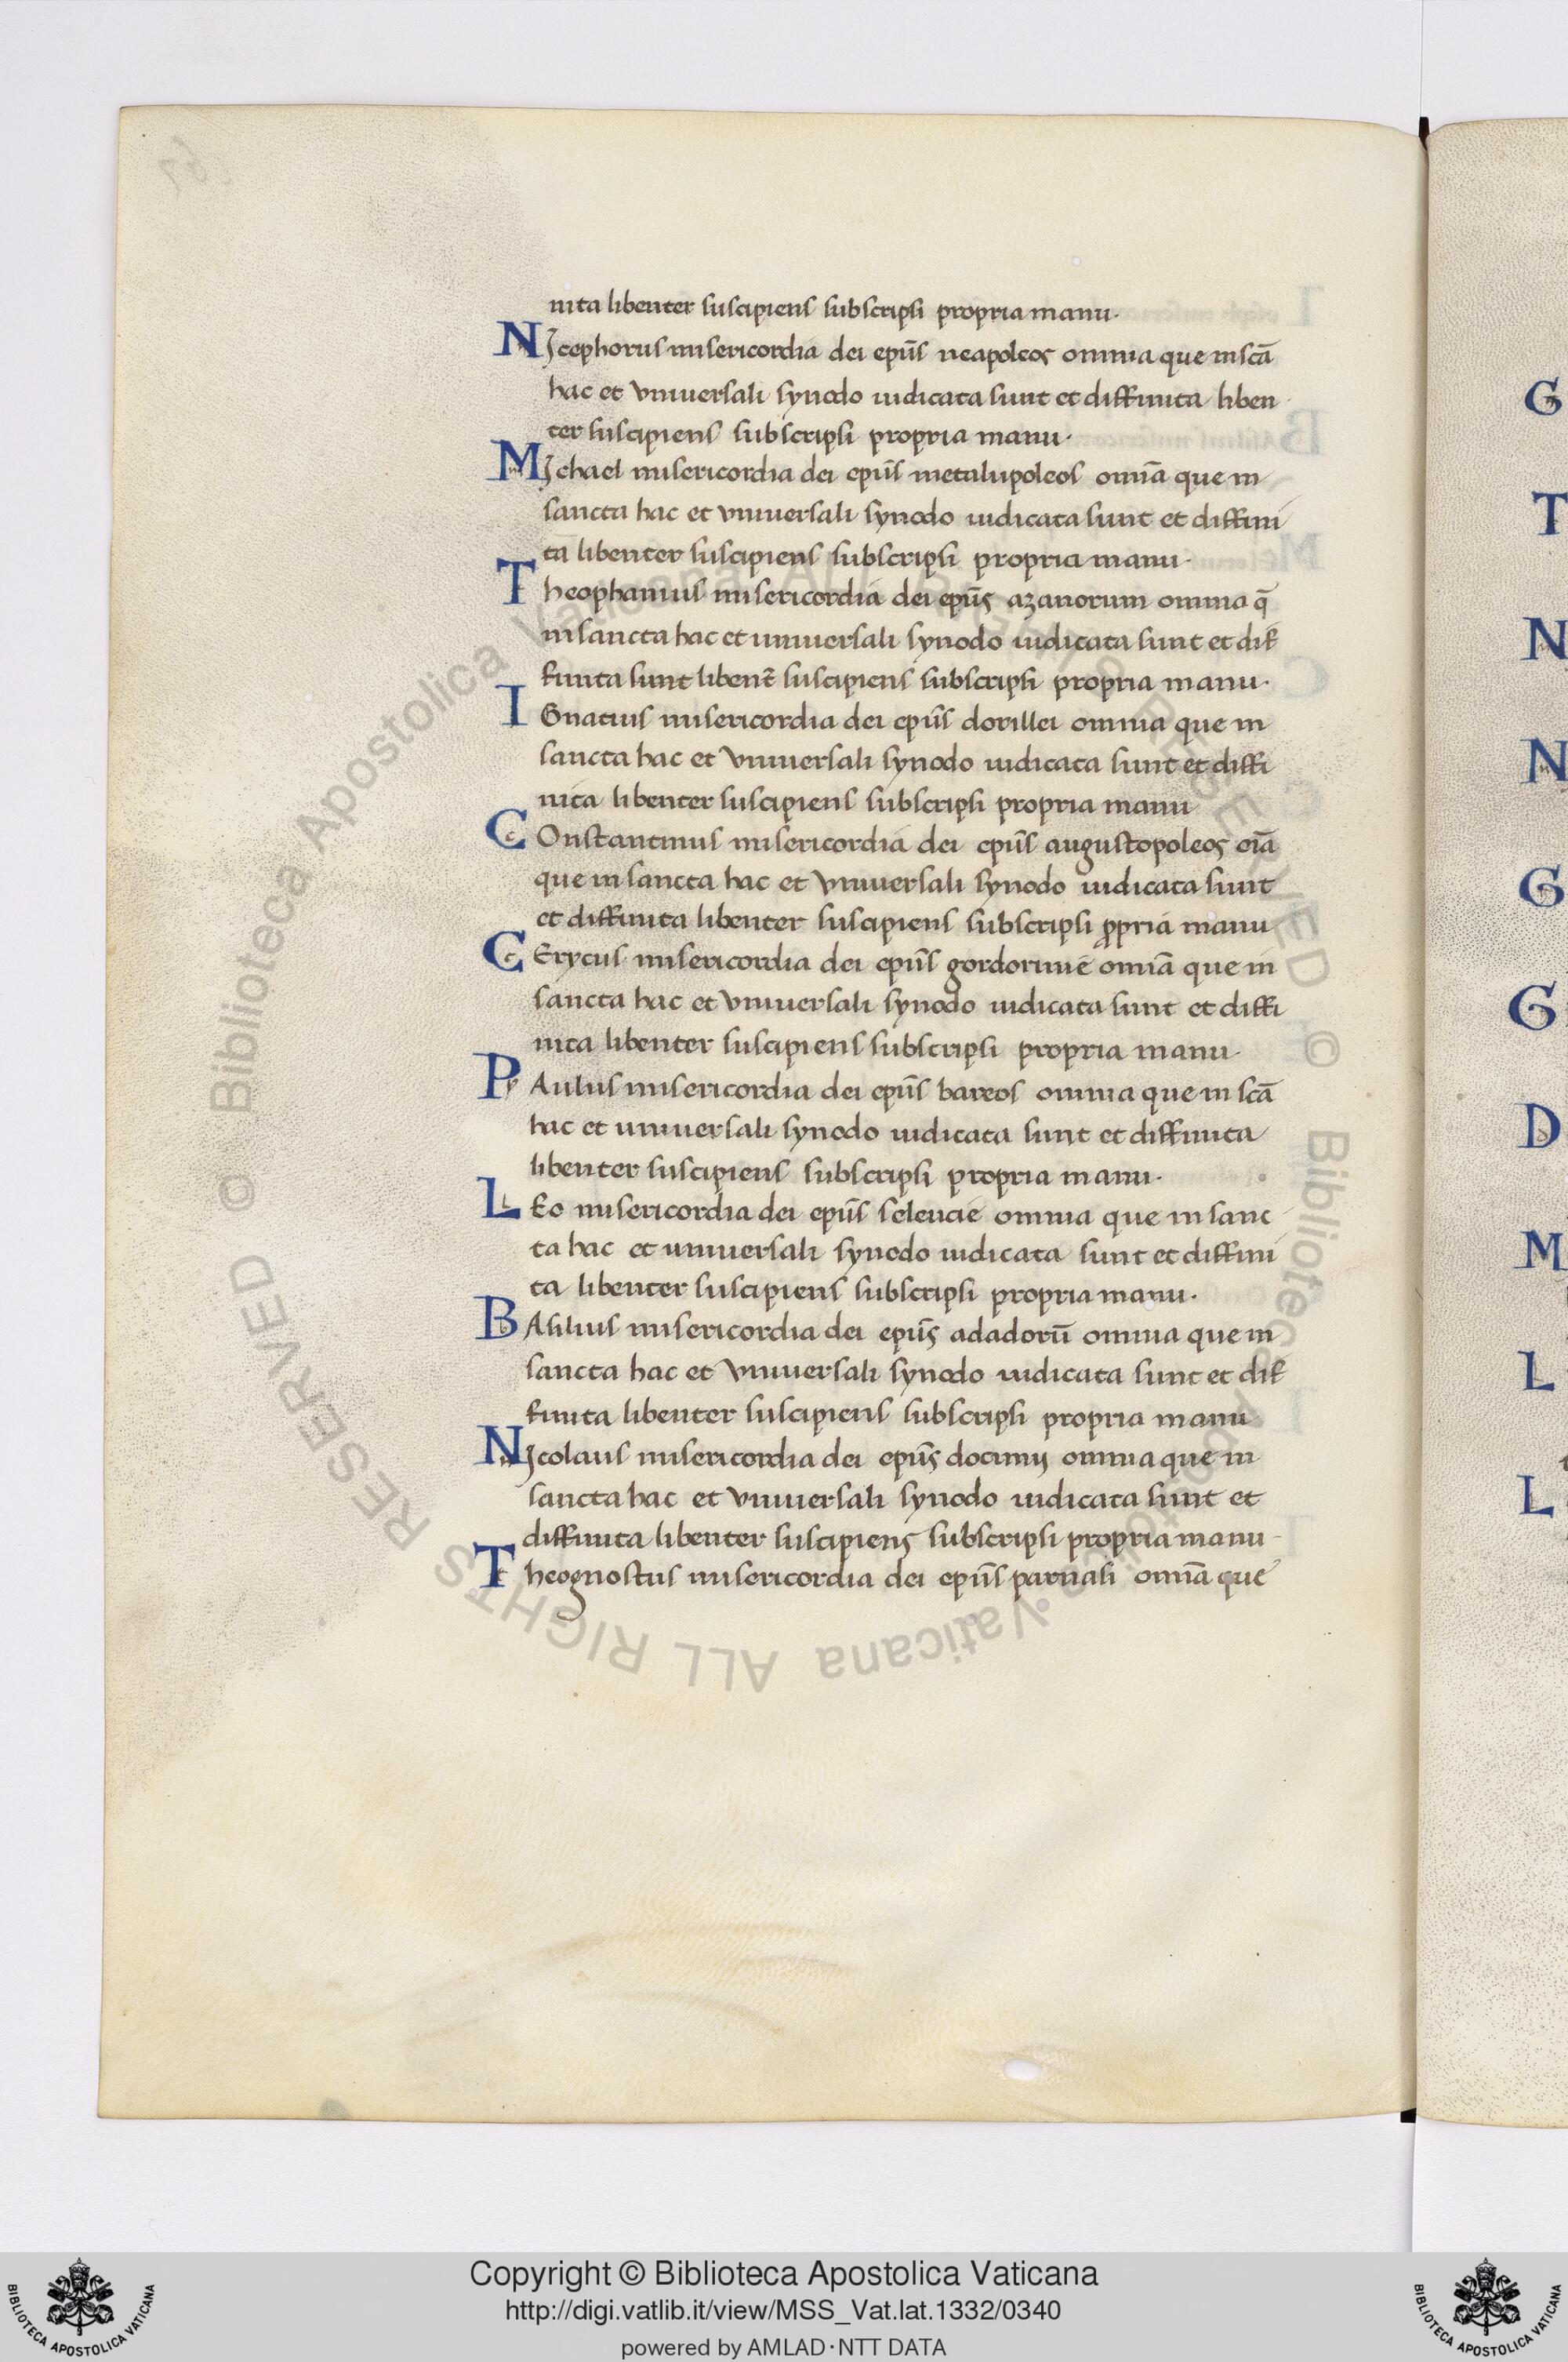 nita libenter suscipiens subscripsi propria manu.
NIcephorus misericordia dei ep̄us neapoleos omnia que in sc̄a
hac et vniuersali synodo iudicata sunt et diffinita liben
ter suscipiens subscripsi propria manu.
MIchael misericordia dei ep̄us metalupoleos omīa que in
sancta hac et vniuersali synodo iudicata sunt et diffini
ta libenter suscipiens subscripsi propria manu.
Theophanius misericordia dei ep̄us azanorum omnia q̄
in sancta hac et uniuersali synodo iudicata sunt et dif
finita sunt libent̄ suscipiens subscripsi propria manu.
IGnatius misericordia dei ep̄us dorillei omnia que in
sancta hac et vniuersali synodo iudicata sunt et diffi
nita libenter suscipiens subscripsi propria manu
COnstantinus misericordia dei ep̄us augustopoleos oīa
que in sancta hac et vniuersali synodo iudicata sunt
et diffinita libenter suscipiens subscripsi ꝓpria manu
CErycus misericordia dei ep̄us gordorinie omīa que in
sancta hac et vniuersali synodo iudicata sunt et diffi
nita libenter suscipiens subscripsi propria manu.
PAulus misericordia dei ep̄us bareos omnia que in sc̄a
hac et uniuersali synodo iudicata sunt et diffinita
libenter suscipiens subscripsi propria manu.
LEo misericordia dei ep̄us seleucie omnia que in sanc
ta hac et uniuersali synodo iudicata sunt et diffini
ta libenter suscipiens subscripsi propria manu.
BAsilius misericordia dei ep̄us adadorū omnia que in
sancta hac et vniuersali synodo iudicata sunt et dif
finita libenter suscipiens subscripsi propria manu
NIcolaus misericordia dei ep̄us docimij omnia que in
sancta hac et vniuersali synodo iudicata sunt et
diffinita libenter suscipiens subscripsi propria manu
Theognostus misericordia dei ep̄us parnasi omīa que
G
T
N
N
G
G
D
M
L
L
© Biblioteca Apostolica Vaticana ALL RIGHTS RESERVED
© Biblioteca Apostolica Vaticana ALL RIGHTS RESERVED
Copyright © Biblioteca Apostolica Vaticana
http://digi.vatlib.it/view/MSS_Vat.lat.1332/0340
powered by AMLAD·NTT DATA
BIBLIOTECA APOSTOLICA VATICANA
BIBLIOTECA APOSTOLICA VATICANA